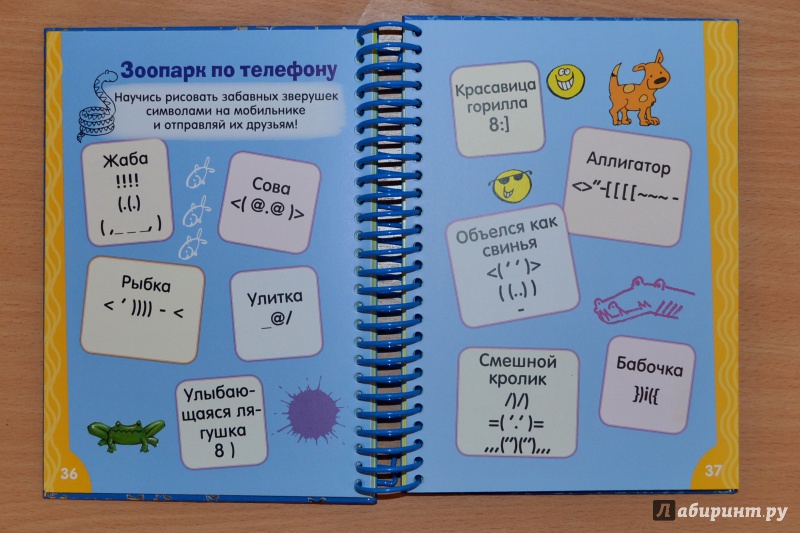 Зоопарк по телефону
Научись рисовать забавных зверушек
символами на мобильнике
и отправляй их друзьям!
Жаба
!!!!
(.(.)
( ,_ _ _, )
Сова
<( @.@ )>
Рыбка
< ‘ )))) - <
Улитка
_@/
Улыбаю-
щаяся ля-
гушка
8 )
36
Красавица
горилла
8:]
Аллигатор
<>”-[[[[~~~ -
Объелся как
свинья
<( ‘ ’ )>
( (..) )
-
Смешной
кролик
/)/)
=( ‘.’ )=
,,,(”)(”),,,
Бабочка
})i({
37
Лабиринт.ру